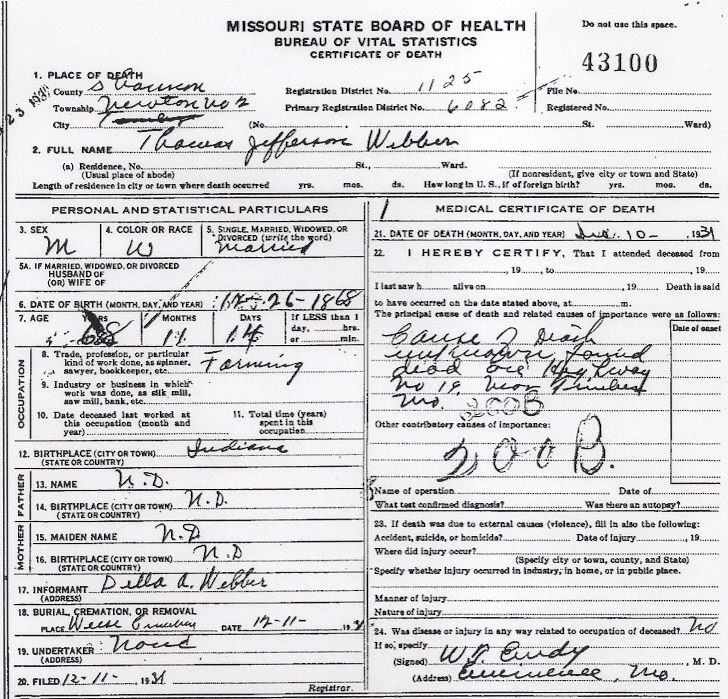 MISSOURI STATE BOARD OF HEALTH
BUREAU OF VITAL STATISTICS
CERTIFICATE OF DEATH
Do not use this space.
43100
1. PLACE OF DEATH
County Shannon Registration District No. 1125 File No.
Township Newton No 2 Primary Registration District No. 6082 Registered No.
City (No. St. Ward)
2. FULL NAME Thomas Jefferson Webber
(a) Residence, No. St., Ward.
(Usual place of abode) (If nonresident, give city or town and State)
Length of residence in city or town where death occurred yrs. mos. ds. How long in U. S., if of foreign birth? yrs. mos. ds.
PERSONAL AND STATISTICAL PARTICULARS
3. SEX M
4. COLOR OR RACE W
5. SINGLE, MARRIED, WIDOWED, OR DIVORCED (write the word) Married
5A. IF MARRIED, WIDOWED, OR DIVORCED
HUSBAND OF
(OR) WIFE OF
6. DATE OF BIRTH (MONTH, DAY, AND YEAR) 12-26-1868
7. AGE YEARS MONTHS DAYS If LESS than 1
11 14 day, hrs.
or min.
OCCUPATION
8. Trade, profession, or particular
kind of work done, as spinner,
sawyer, bookkeeper, etc. Farming
9. Industry or business in which
work was done, as silk mill,
saw mill, bank, etc.
10. Date deceased last worked at
this occupation (month and
year)
11. Total time (years)
spent in this
occupation
12. BIRTHPLACE (CITY OR TOWN) Indiana
(STATE OR COUNTRY)
FATHER
13. NAME N.D.
14. BIRTHPLACE (CITY OR TOWN) N.D.
(STATE OR COUNTRY)
MOTHER
15. MAIDEN NAME N.D
16. BIRTHPLACE (CITY OR TOWN) N.D
(STATE OR COUNTRY)
17. INFORMANT Della A. Webber
(ADDRESS)
18. BURIAL, CREMATION, OR REMOVAL
PLACE DATE 12-11- 1931
19. UNDERTAKER None
(ADDRESS)
20. FILED 12-11- 1931
Registrar.
MEDICAL CERTIFICATE OF DEATH
21. DATE OF DEATH (MONTH, DAY, AND YEAR) Dec. 10- 1931
22. I HEREBY CERTIFY, That I attended deceased from
, 19 , to , 19
I last saw h alive on , 19 Death is said
to have occurred on the date stated above, at m.
The principal cause of death and related causes of importance were as follows:
Date of onset
Cause of Death
unknown found
dead on Highway
No 19, near Timber
Mo. 200B
Other contributory causes of importance:
200B.
Name of operation Date of
What test confirmed diagnosis? Was there an autopsy?
23. If death was due to external causes (violence), fill in also the following:
Accident, suicide, or homicide? Date of injury , 19
Where did injury occur?
(Specify city or town, county, and State)
Specify whether injury occurred in industry, in home, or in public place.
Manner of injury
Nature of injury
24. Was disease or injury in any way related to occupation of deceased? No
If so, specify
(Signed) , M. D.
(Address) Eminence, Mo.